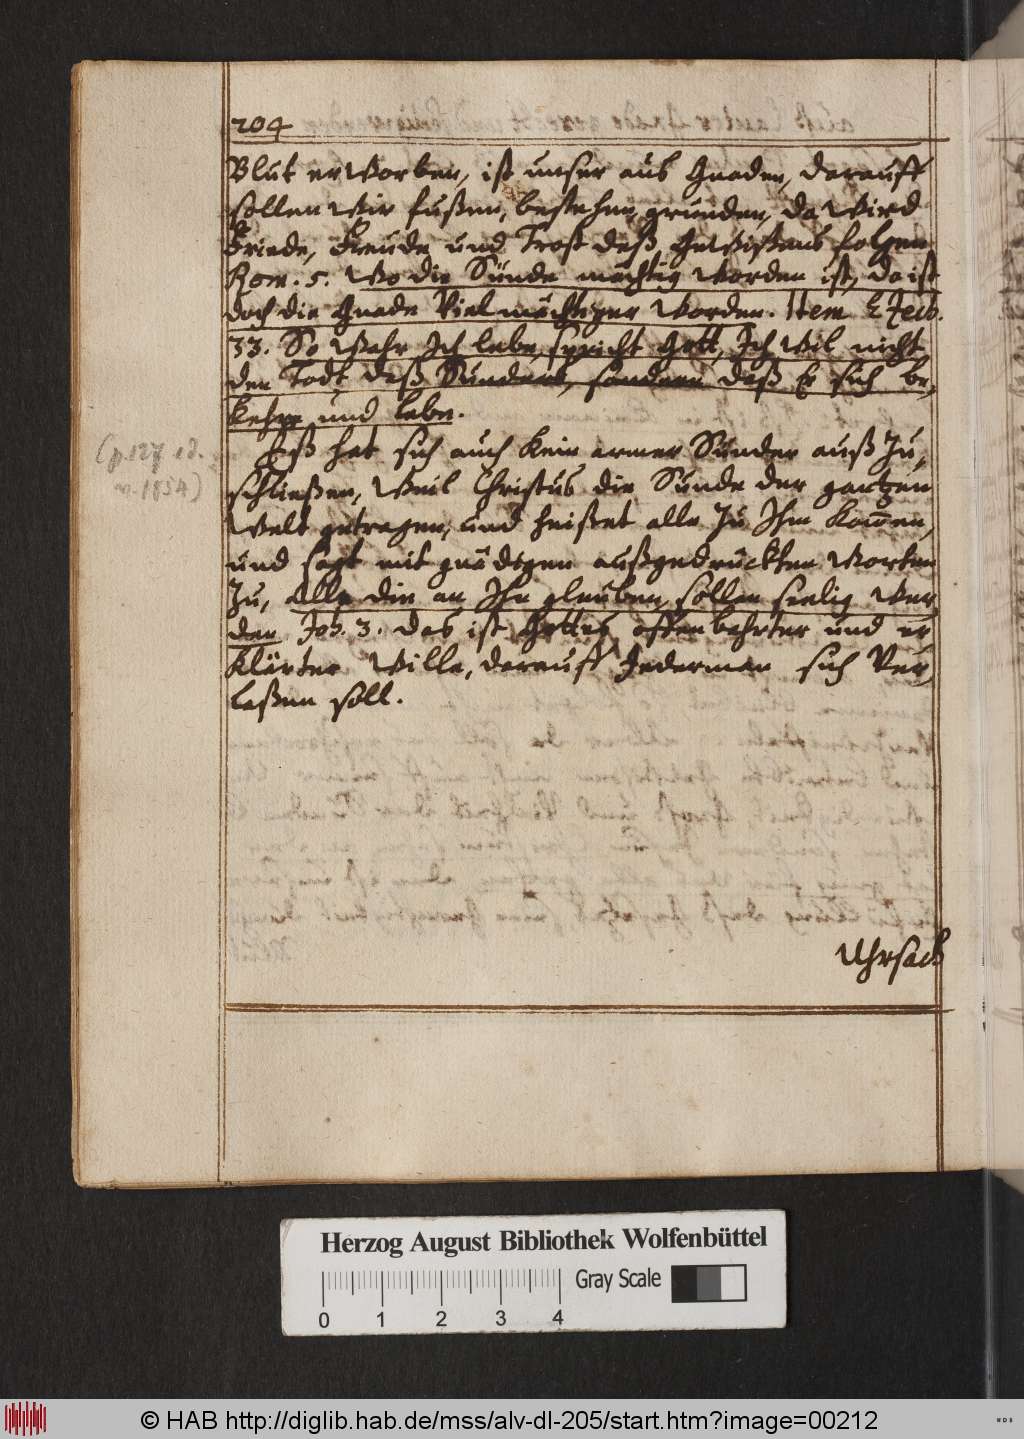 204
Blut erworben, ist unser aus Gnaden, darauff
sollen wir fußen, bestehen, gründen, da wird
Friede, Freude und Trost deß Gewißens folgen
Rom. 5. Wo die Sünde mächtig worden ist, da ist
doch die Gnade viel mächtiger worden. Item Ezech.
33. So wahr Ich lebe, spricht Gott, Ich wil nicht
den Todt deß Sünders, sondern daß Er sich be,
kehre und lebe.
Eß hat sich auch kein armer Sünder auß zu,
schließen, weil Christus die Sünde der gantzen
Welt getragen, und heißet alle zu Ihm kom̄en,
und sagt mit gnädigen außgedruckten Worten
zu, alle die an Ihn glauben, sollen seelig wer,
den Joh. 3. das ist Gottes offenbahrter und er
klärter Wille, darauff Jederman sich ver,
laßen soll.
(p.127 id.
v. 1854)
Uhrsach
Herzog August Bibliothek Wolfenbüttel
Gray Scale
0 1 2 3 4
© HAB http://diglib.hab.de/mss/alv-dl-205/start.htm?image=00212
WDB